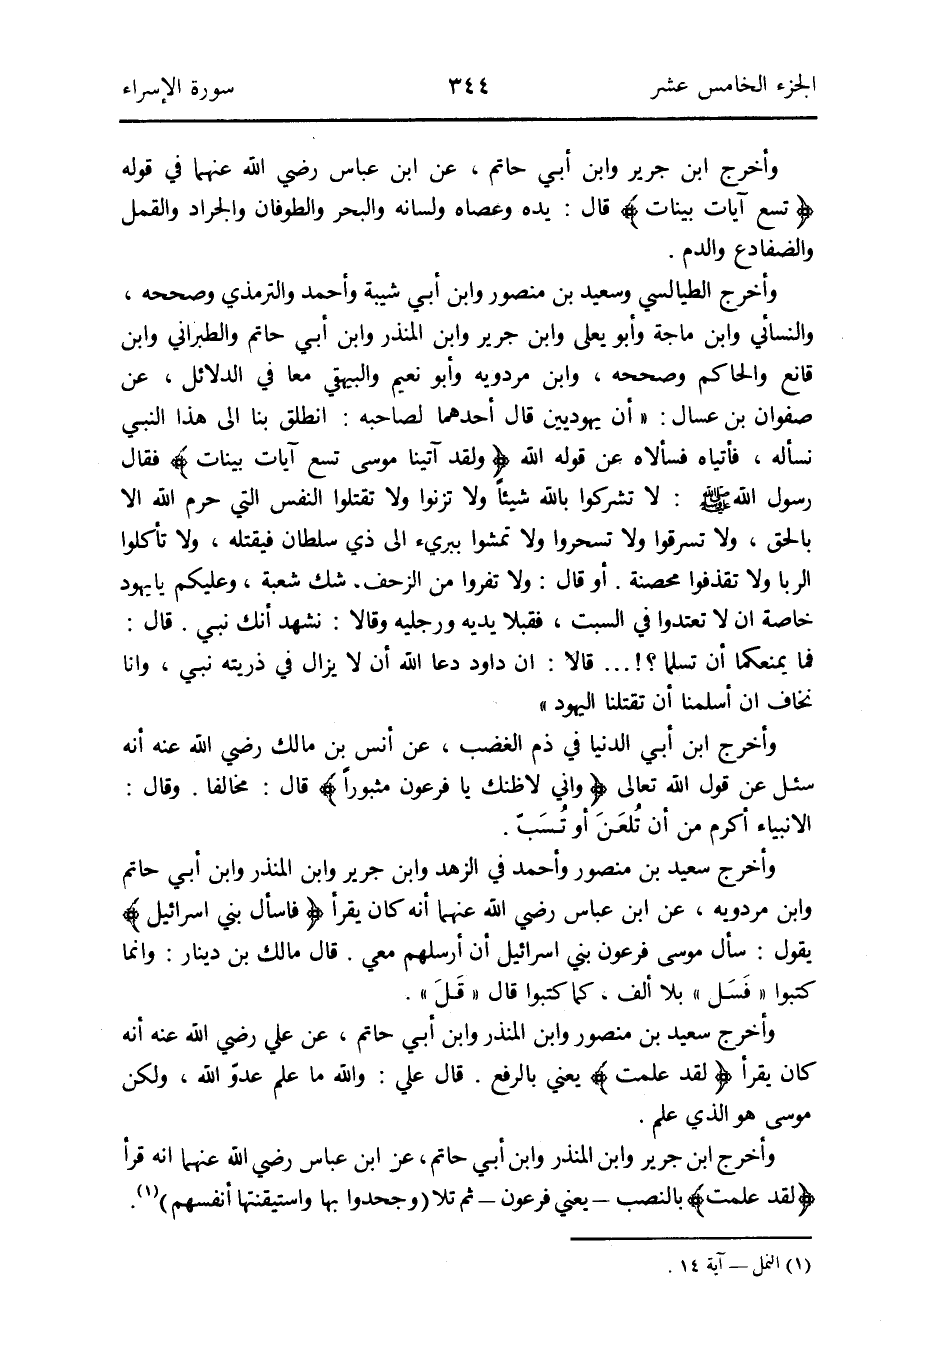 الجزء الخامس عشر ٣٤٤ سورة الإسراء
وأخرج ابن جرير وابن أبي حاتم ، عن ابن عباس رضي الله عنهما في قوله
﴿ تسع آيات بينات ﴾ قال : يده وعصاه ولسانه والبحر والطوفان والجراد والقمل
والضفادع والدم .
وأخرج الطيالسي وسعيد بن منصور وابن أبي شيبة وأحمد والترمذي وصححه ،
والنسائي وابن ماجة وأبو يعلى وابن جرير وابن المنذر وابن أبي حاتم والطبراني وابن
قانع والحاكم وصححه ، وابن مردويه وأبو نعيم والبيهقي معا في الدلائل ، عن
صفوان بن عسال : « أن يهوديين قال أحدهما لصاحبه : انطلق بنا الى هذا النبي
نسأله ، فأتياه فسألاه عن قوله الله ﴿ ولقد آتينا موسى تسع آيات بينات ﴾ فقال
رسول الله ﷺ : لا تشركوا بالله شيئاً ولا تزنوا ولا تقتلوا النفس التي حرم الله الا
بالحق ، ولا تسرقوا ولا تسحروا ولا تمشوا ببريء الى ذي سلطان فيقتله ، ولا تأكلوا
الربا ولا تقذفوا محصنة . أو قال : ولا تفروا من الزحف. شك شعبة ، وعليكم يايهود
خاصة ان لا تعتدوا في السبت ، فقبلا يديه ورجليه وقالا : نشهد أنك نبي . قال :
فما يمنعكما أن تسلما ؟!... قالا : ان داود دعا الله أن لا يزال في ذريته نبي ، وانا
نخاف ان أسلمنا أن تقتلنا اليهود »
وأخرج ابن أبي الدنيا في ذم الغضب ، عن أنس بن مالك رضي الله عنه أنه
سئل عن قول الله تعالى ﴿ واني لاظنك يا فرعون مثبوراً ﴾ قال : مخالفا . وقال :
الانبياء أكرم من أن تُلعَنَ أو تُسَبّ .
وأخرج سعيد بن منصور وأحمد في الزهد وابن جرير وابن المنذر وابن أبي حاتم
وابن مردويه ، عن ابن عباس رضي الله عنهما أنه كان يقرأ ﴿ فاسأل بني اسرائيل ﴾
يقول : سأل موسى فرعون بني اسرائيل أن أرسلهم معي . قال مالك بن دينار : وانما
كتبوا « فَسَل » بلا ألف ، كما كتبوا قال « قَلَ » .
وأخرج سعيد بن منصور وابن المنذر وابن أبي حاتم ، عن علي رضي الله عنه أنه
كان يقرأ ﴿ لقد علمت ﴾ يعني بالرفع . قال علي : والله ما علم عدوّ الله ، ولكن
موسى هو الذي علم .
وأخرج ابن جرير وابن المنذر وابن أبي حاتم، عن ابن عباس رضي الله عنهما انه قرأ
﴿ لقد علمت ﴾ بالنصب – يعني فرعون – ثم تلا ( وجحدوا بها واستيقنتها أنفسهم )(١).
(١) النمل – آية ١٤ .